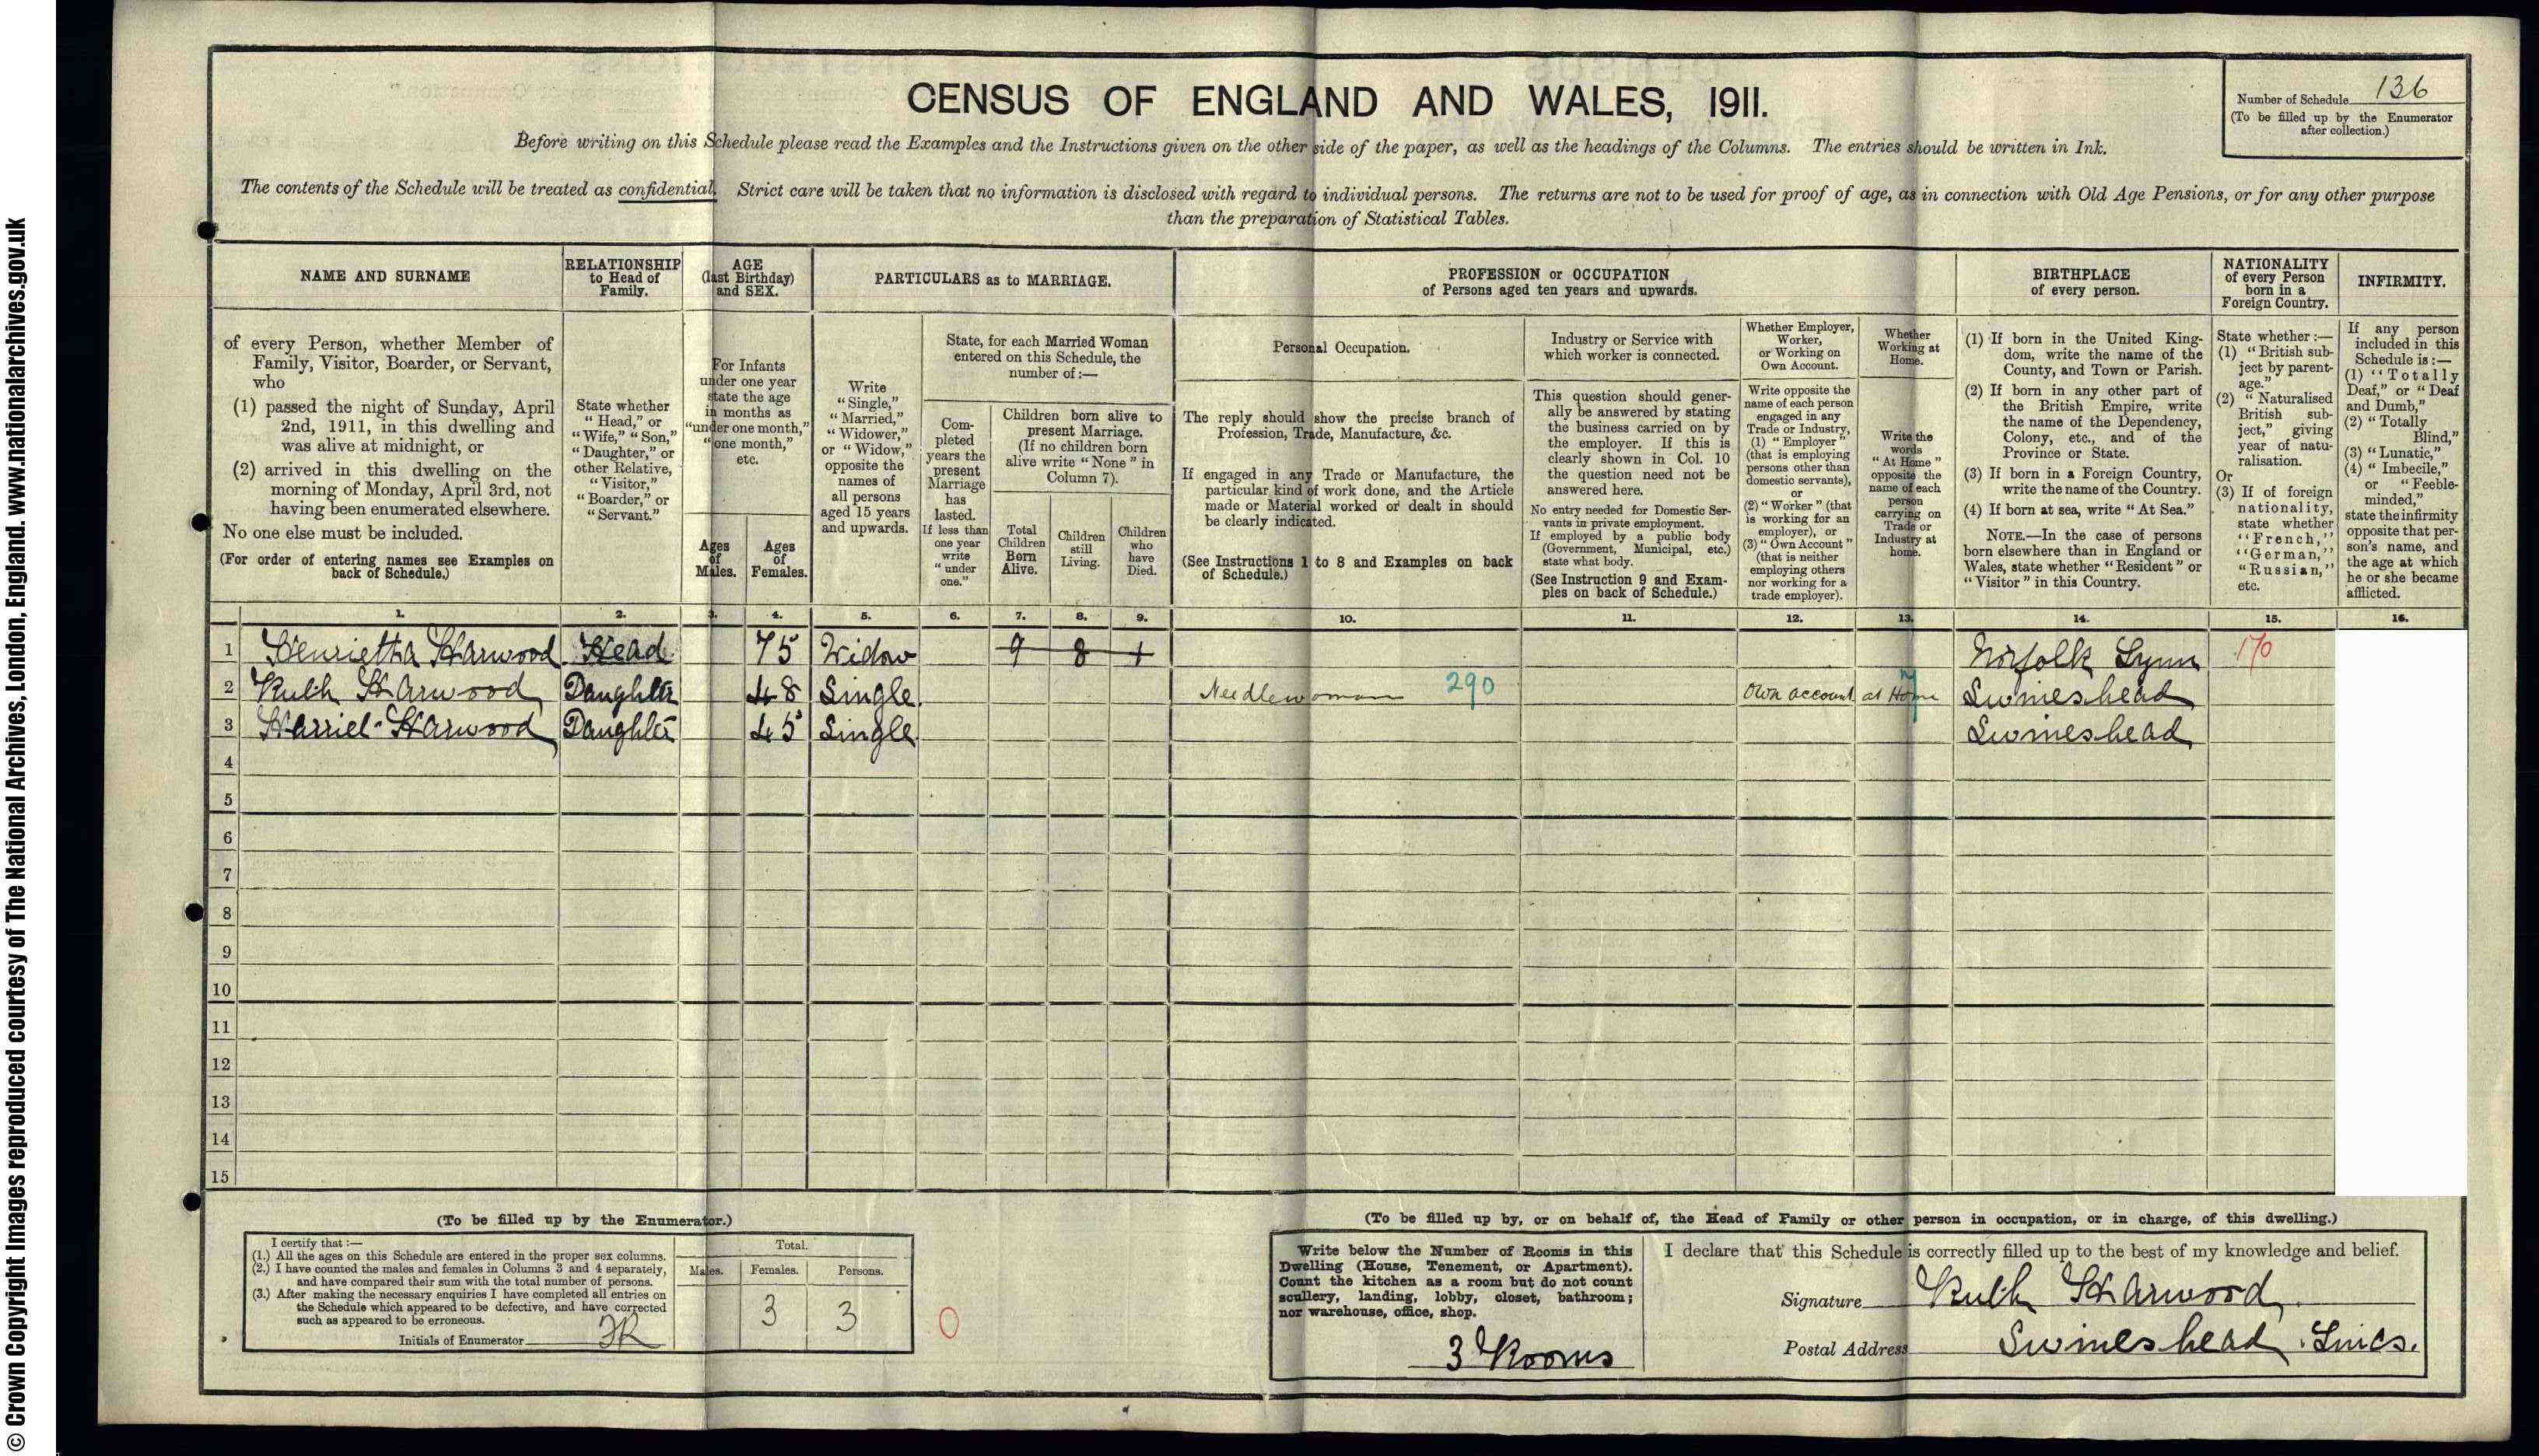 CENSUS OF ENGLAND AND WALES, 1911.
Number of Schedule 136
(To be filled up by the Enumerator
after collection.)
Before writing on this Schedule please read the Examples and the Instructions given on the other side of the paper, as well as the headings of the Columns. The entries should be written in Ink.
The contents of the Schedule will be treated as confidential. Strict care will be taken that no information is disclosed with regard to individual persons. The returns are not to be used for proof of age, as in connection with Old Age Pensions, or for any other purpose
than the preparation of Statistical Tables.
NAME AND SURNAME
of every Person, whether Member of
Family, Visitor, Boarder, or Servant,
who
(1) passed the night of Sunday, April
2nd, 1911, in this dwelling and
was alive at midnight, or
(2) arrived in this dwelling on the
morning of Monday, April 3rd, not
having been enumerated elsewhere.
No one else must be included.
(For order of entering names see Examples on
back of Schedule.)
RELATIONSHIP
to Head of
Family.
State whether
"Head," or
"Wife," "Son,"
"Daughter," or
other Relative,
"Visitor,"
"Boarder," or
"Servant."
AGE
(last Birthday)
and SEX.
For Infants
under one year
state the age
in months as
"under one month,"
"one month,"
etc.
Ages
of
Males.
Ages
of
Females.
PARTICULARS as to MARRIAGE.
Write
"Single,"
"Married,"
"Widower,"
or "Widow,"
opposite the
names of
all persons
aged 15 years
and upwards.
State, for each Married Woman
entered on this Schedule, the
number of:—
Com-
pleted
years the
present
Marriage
has
lasted.
If less than
one year
write
"under
one."
Children born alive to
present Marriage.
(If no children born
alive write "None" in
Column 7).
Total
Children
Born
Alive.
Children
still
Living.
Children
who
have
Died.
PROFESSION or OCCUPATION
of Persons aged ten years and upwards.
Personal Occupation.
The reply should show the precise branch of
Profession, Trade, Manufacture, &c.
If engaged in any Trade or Manufacture, the
particular kind of work done, and the Article
made or Material worked or dealt in should
be clearly indicated.
(See Instructions 1 to 8 and Examples on back
of Schedule.)
Industry or Service with
which worker is connected.
This question should gener-
ally be answered by stating
the business carried on by
the employer. If this is
clearly shown in Col. 10
the question need not be
answered here.
No entry needed for Domestic Ser-
vants in private employment.
If employed by a public body
(Government, Municipal, etc.)
state what body.
(See Instruction 9 and Exam-
ples on back of Schedule.)
Whether Employer,
Worker,
or Working on
Own Account.
Write opposite the
name of each person
engaged in any
Trade or Industry,
(1) "Employer"
(that is employing
persons other than
domestic servants),
or
(2) "Worker" (that
is working for an
employer), or
(3) "Own Account"
(that is neither
employing others
nor working for a
trade employer).
Whether
Working at
Home.
Write the
words
"At Home"
opposite the
name of each
person
carrying on
Trade or
Industry at
home.
BIRTHPLACE
of every person.
(1) If born in the United King-
dom, write the name of the
County, and Town or Parish.
(2) If born in any other part of
the British Empire, write
the name of the Dependency,
Colony, etc., and of the
Province or State.
(3) If born in a Foreign Country,
write the name of the Country.
(4) If born at sea, write "At Sea."
NOTE.—In the case of persons
born elsewhere than in England or
Wales, state whether "Resident" or
"Visitor" in this Country.
NATIONALITY
of every Person
born in a
Foreign Country.
State whether:—
(1) "British sub-
ject by parent-
age."
(2) "Naturalised
British sub-
ject," giving
year of natu-
ralisation.
Or
(3) If of foreign
nationality,
state whether
"French,"
"German,"
"Russian,"
etc.
INFIRMITY.
If any person
included in this
Schedule is:—
(1) "Totally
Deaf," or "Deaf
and Dumb,"
(2) "Totally
Blind,"
(3) "Lunatic,"
(4) "Imbecile,"
or "Feeble-
minded,"
state the infirmity
opposite that per-
son's name, and
the age at which
he or she became
afflicted.
1. 2. 3. 4. 5. 6. 7. 8. 9. 10. 11. 12. 13. 14. 15. 16.
1 Henrietta Harwood Head 75 Widow 9 8 1 Norfolk Lynn 170
2 Ruth Harwood Daughter 48 Single Needlewoman 290 Own account at Home Swineshead
3 Harriet Harwood Daughter 45 Single Swineshead
4
5
6
7
8
9
10
11
12
13
14
15
(To be filled up by the Enumerator.)
I certify that:—
(1.) All the ages on this Schedule are entered in the proper sex columns.
(2.) I have counted the males and females in Columns 3 and 4 separately,
and have compared their sum with the total number of persons.
(3.) After making the necessary enquiries I have completed all entries on
the Schedule which appeared to be defective, and have corrected
such as appeared to be erroneous.
Initials of Enumerator
Total.
Males. Females. Persons.
3 3
0
(To be filled up by, or on behalf of, the Head of Family or other person in occupation, or in charge, of this dwelling.)
Write below the Number of Rooms in this
Dwelling (House, Tenement, or Apartment).
Count the kitchen as a room but do not count
scullery, landing, lobby, closet, bathroom;
nor warehouse, office, shop.
3 Rooms
I declare that this Schedule is correctly filled up to the best of my knowledge and belief.
Signature Ruth Harwood
Postal Address Swineshead. Lincs.
© Crown Copyright Images reproduced courtesy of The National Archives, London, England. www.nationalarchives.gov.uk